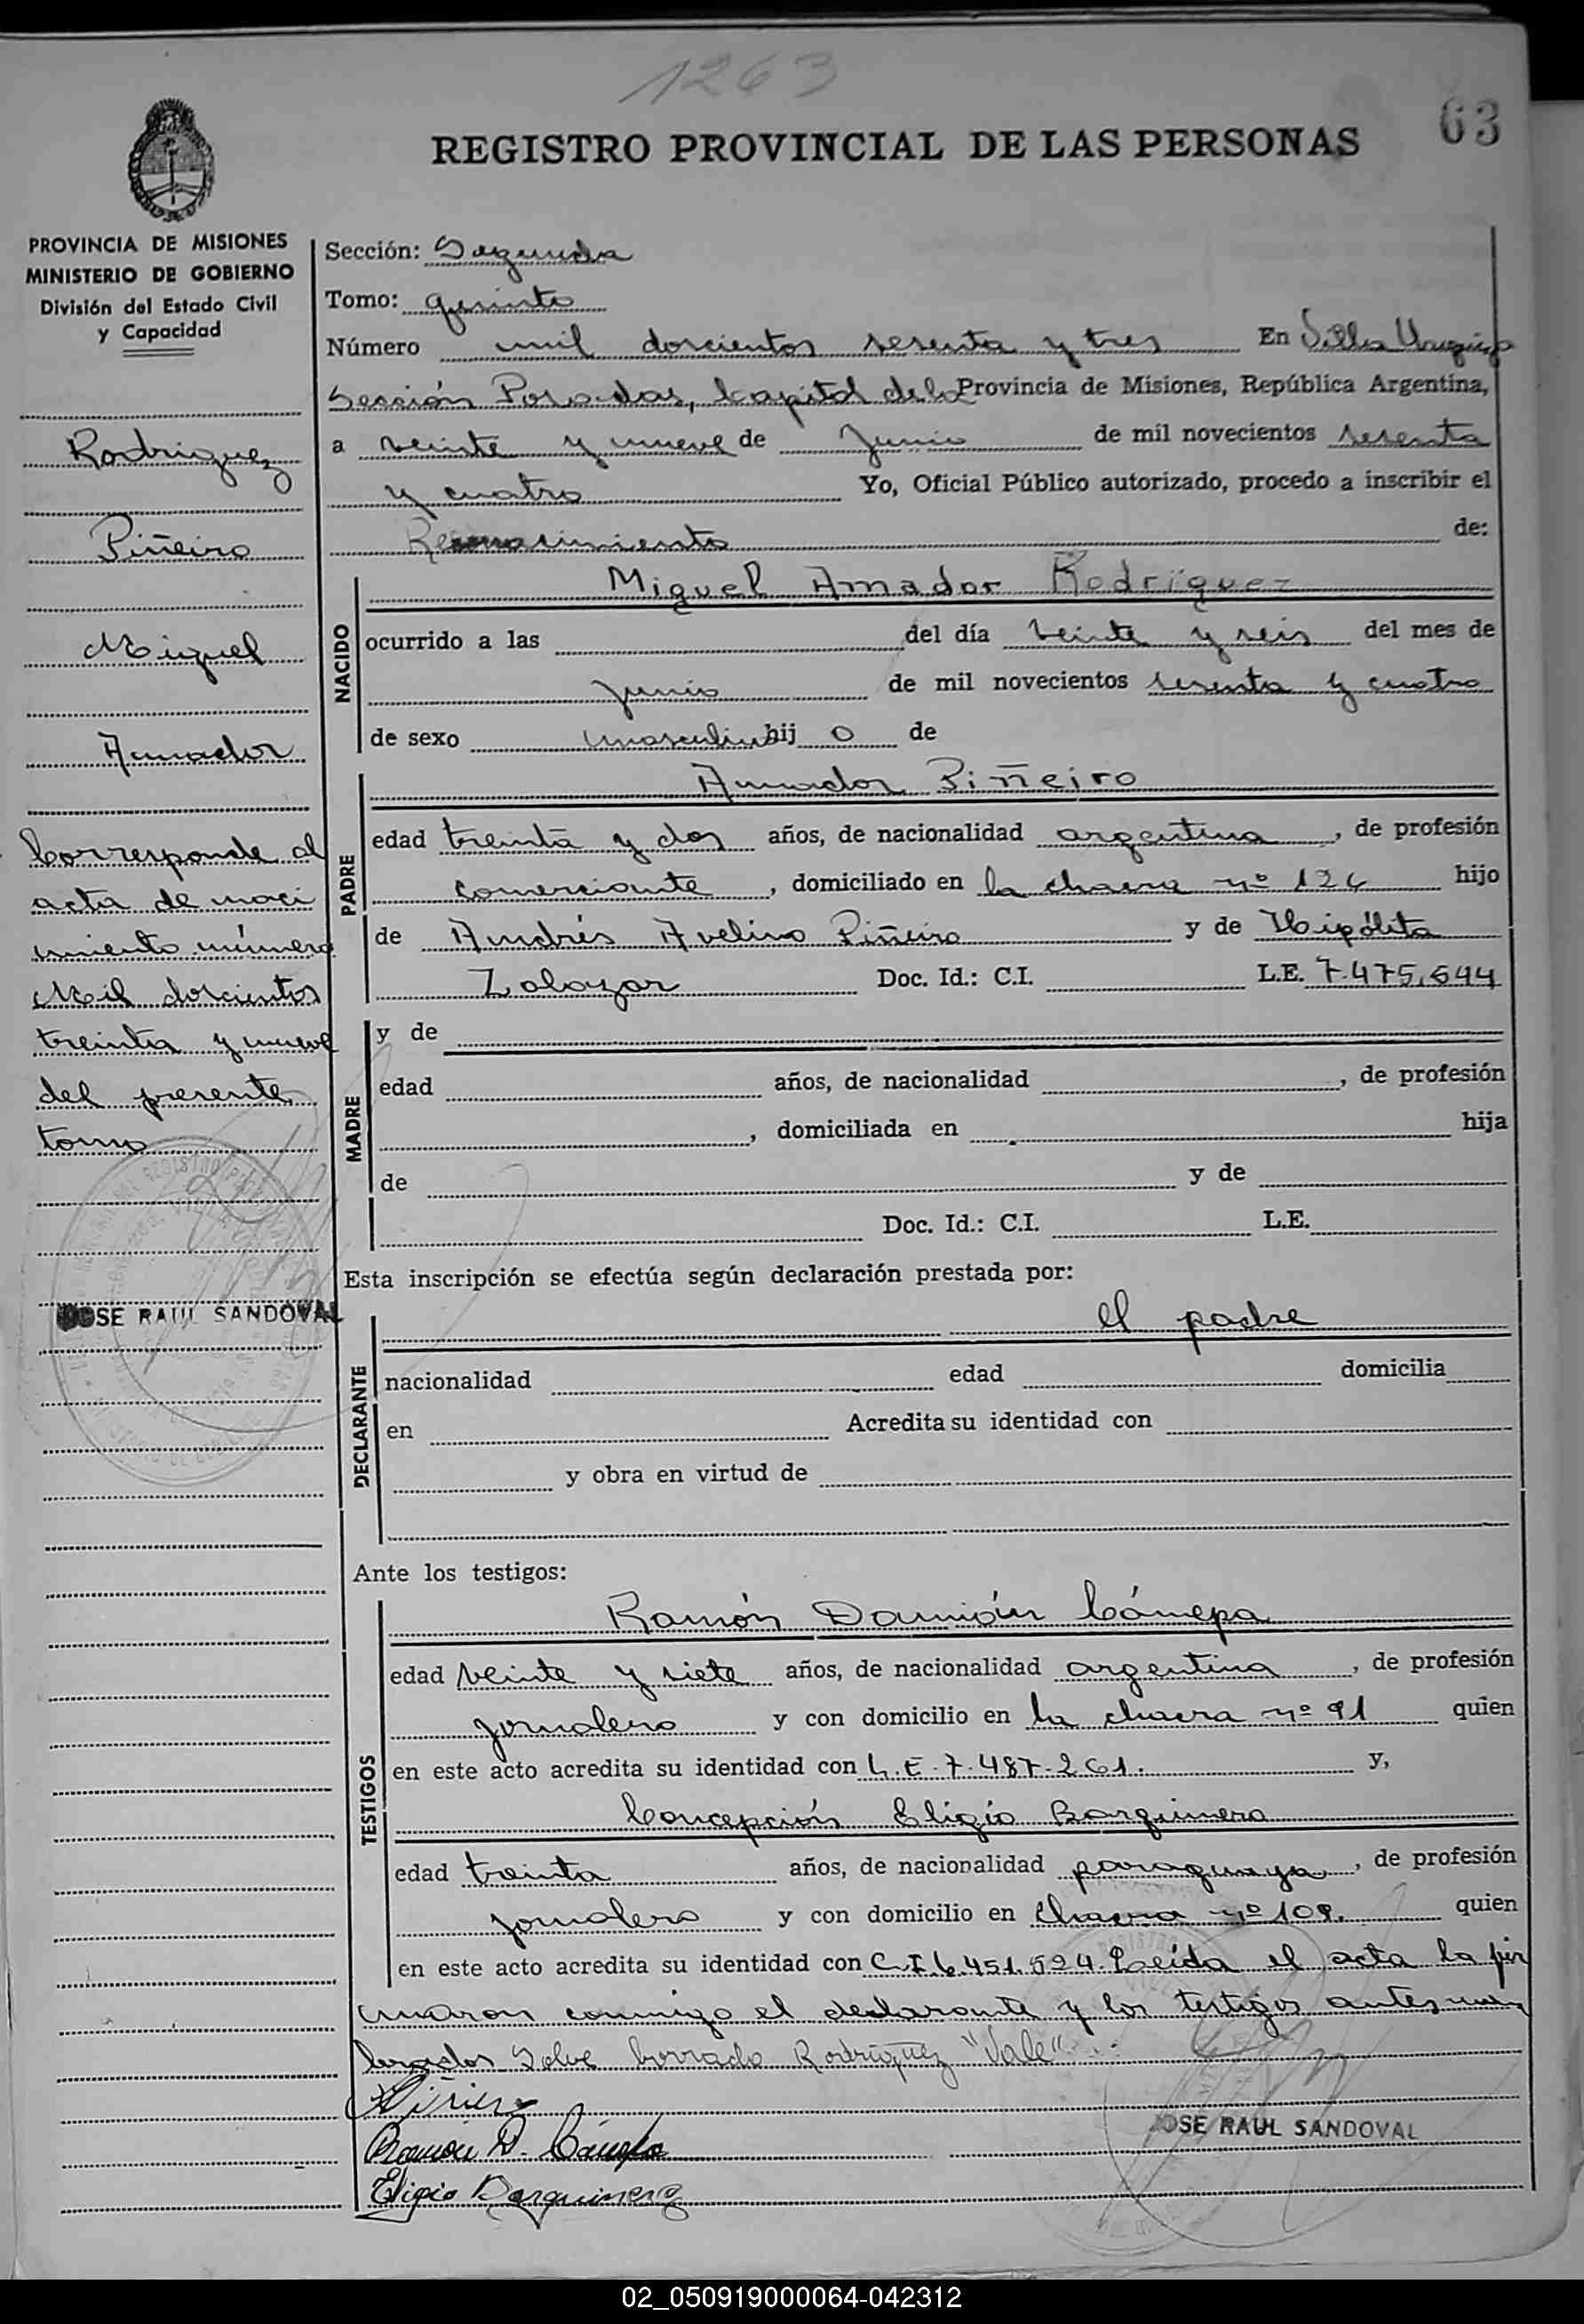 1263
63
REGISTRO PROVINCIAL DE LAS PERSONAS
PROVINCIA DE MISIONES
MINISTERIO DE GOBIERNO
División del Estado Civil
y Capacidad
Rodriguez
Piñeiro
Miguel
Amador
Corresponde al
acta de naci
miento número
Mil doscientos
treinta y nueve
del presente
tomo
JOSE RAUL SANDOVAL
Sección: Segunda
Tomo: quinto
Número mil doscientos sesenta y tres En Villa Urquiza
Sección Posadas, Capital de la Provincia de Misiones, República Argentina,
a veinte y nueve de Junio de mil novecientos sesenta
y cuatro Yo, Oficial Público autorizado, procedo a inscribir el
Reconocimiento de:
NACIDO
Miguel Amador Rodriguez
ocurrido a las del día veinte y seis del mes de
junio de mil novecientos sesenta y cuatro
de sexo masculino hij o de
PADRE
Amador Piñeiro
edad treinta y dos años, de nacionalidad argentina, de profesión
comerciante, domiciliado en la chacra nº 124 hijo
de Andrés Avelino Piñeiro y de Hipólita
Zalazar Doc. Id.: C.I. L.E. 7.475.644
MADRE
y de
edad años, de nacionalidad , de profesión
, domiciliada en hija
de y de
Doc. Id.: C.I. L.E.
Esta inscripción se efectúa según declaración prestada por:
DECLARANTE
el padre
nacionalidad edad domicilia
en Acredita su identidad con
y obra en virtud de
Ante los testigos:
TESTIGOS
Ramón Damián Cánepa
edad veinte y siete años, de nacionalidad argentina, de profesión
jornalero y con domicilio en la chacra nº 91 quien
en este acto acredita su identidad con L.E. 7.487.261. y,
Concepción Eligio Barquinero
edad treinta años, de nacionalidad paraguaya, de profesión
jornalero y con domicilio en chacra nº 109. quien
en este acto acredita su identidad con C.I. 6.451.524. Leída el acta la fir
maron conmigo el declarante y los testigos antes nom
brados Salvé borrado Rodriguez "Vale".
Ramón D. Cánepa
Eligio Barquinero
JOSE RAUL SANDOVAL
02_050919000064-042312